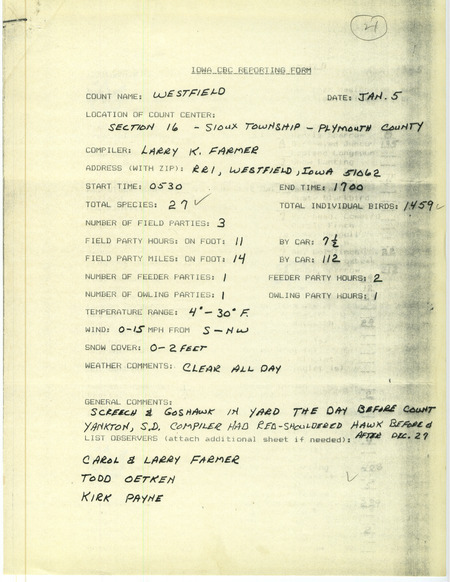 21
IOWA CBC REPORTING FORM
COUNT NAME: WESTFIELD DATE: JAN. 5
LOCATION OF COUNT CENTER:
SECTION 16 - SIOUX TOWNSHIP - PLYMOUTH COUNTY
COMPILER: LARRY K. FARMER
ADDRESS (WITH ZIP): RR1, WESTFIELD, IOWA 51062
START TIME: 0530 END TIME: 1700
TOTAL SPECIES: 27 ✓ TOTAL INDIVIDUAL BIRDS: 1459 ✓
NUMBER OF FIELD PARTIES: 3
FIELD PARTY HOURS: ON FOOT: 11 BY CAR: 7½
FIELD PARTY MILES: ON FOOT: 14 BY CAR: 112
NUMBER OF FEEDER PARTIES: 1 FEEDER PARTY HOURS: 2
NUMBER OF OWLING PARTIES: 1 OWLING PARTY HOURS: 1
TEMPERATURE RANGE: 4° - 30° F.
WIND: 0-15 MPH FROM S-NW
SNOW COVER: 0-2 FEET
WEATHER COMMENTS: CLEAR ALL DAY
GENERAL COMMENTS:
SCREECH & GOSHAWK IN YARD THE DAY BEFORE COUNT
YANKTON, S.D. COMPILER HAD RED-SHOULDERED HAWK BEFORE &
LIST OBSERVERS (attach additional sheet if needed): AFTER DEC. 29
CAROL & LARRY FARMER
TODD OETKEN
KIRK PAYNE